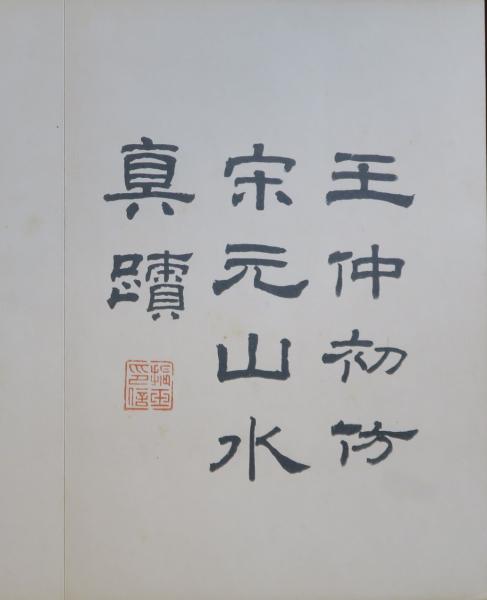 王仲初仿
宋元山水
真蹟